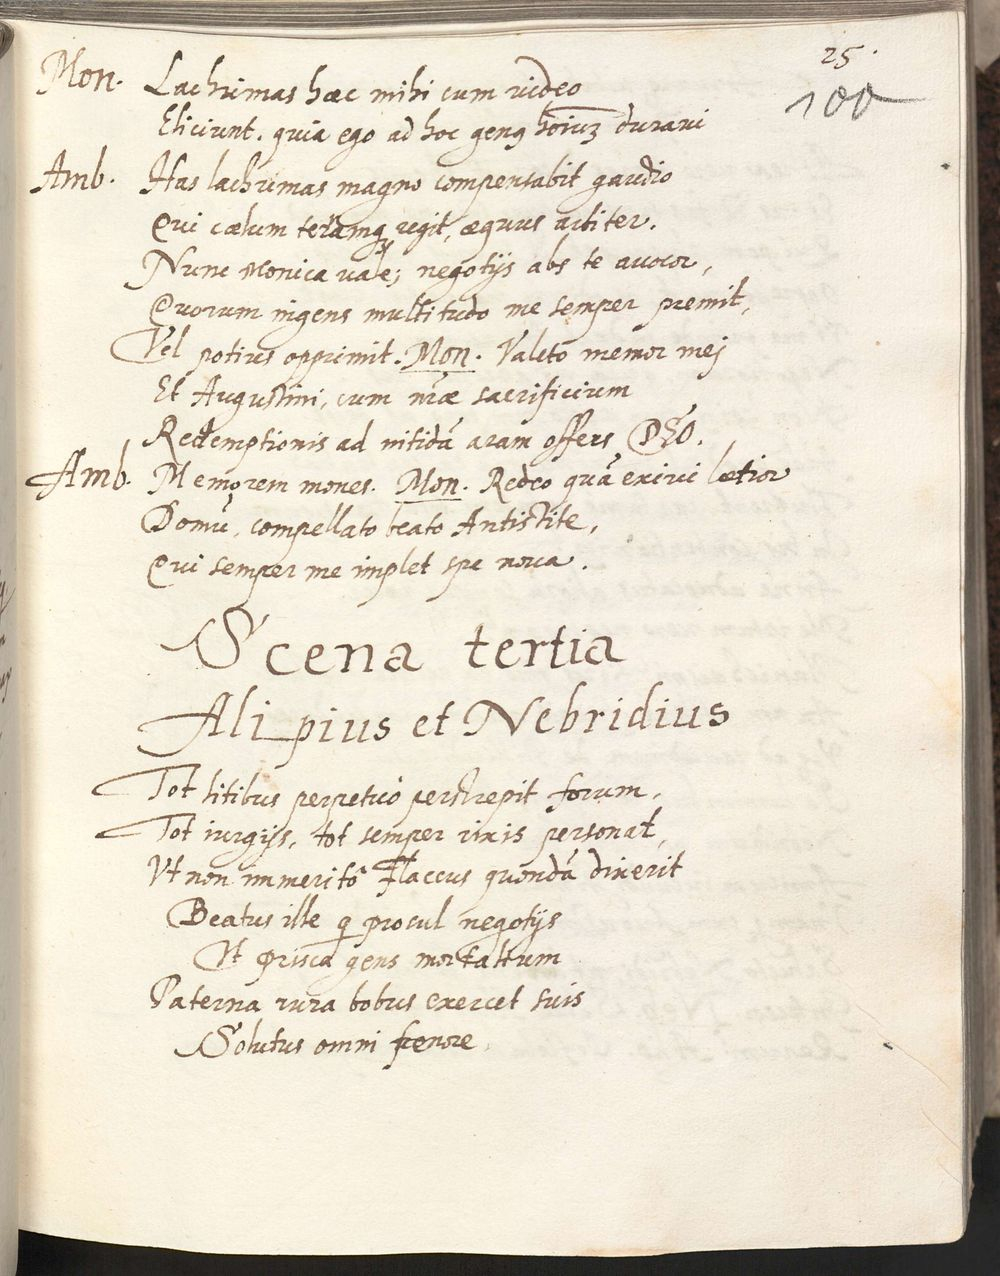 25.
100
Mon. Lachrimas hæc mihi cum video
Eliciunt. quia ego ad hoc geng hoiuʒ durarui
Amb. Has lachrimas magno compensabit gaudio
Qui cælum terāmq regit, æquus arbiter.
Nunc Monica vale; negotijs abs te auocor,
Quorum ingens multitudo me semper premit,
Vel potius opprimit. Mon. Valeto memor mej
Et Augustini, cum nr̃æ sacrificium
Redemptionis ad nitidā aram offers DEO.
Amb. Memorem mones. Mon. Redeo quā exivi lætior
Domū, compellato beato Antistite,
Qui semper me implet spe noua.
Scena tertia
Alipius et Nebridius
Tot litibus perpetuò perstrepit forum,
Tot iurgijs, tot semper rixis personat,
Vt non immeritò Flaccus quondā dixerit
Beatus ille q procul negotijs
Vt prisca gens mortalium
Paterna rura bobus exercet suis
Solutus omni fœnore.